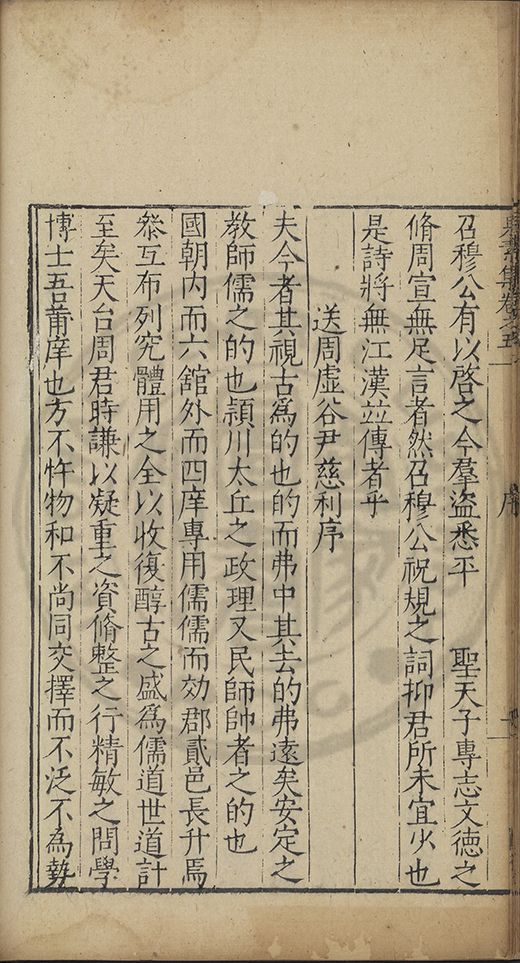 召穆公有以啓之今羣盗悉平　聖天子専志文德之
脩周宣無足言者然召穆公祝規之詞抑君所未宜少也
是詩將無江漢並傳者乎
送周虛谷尹慈利序
夫今者其視古爲的也的而弗中其去的弗遠矣安定之
教師儒之的也頴川太丘之政理又民師帥者之的也
國朝内而六舘外而四庠専用儒儒而効郡貳邑長升焉
叅互布列究體用之全以收復醇古之盛爲儒道世道計
至矣天台周君時謙以凝重之資脩整之行精敏之問學
博士吾莆庠也方不忤物和不尚同交擇而不泛不為埶